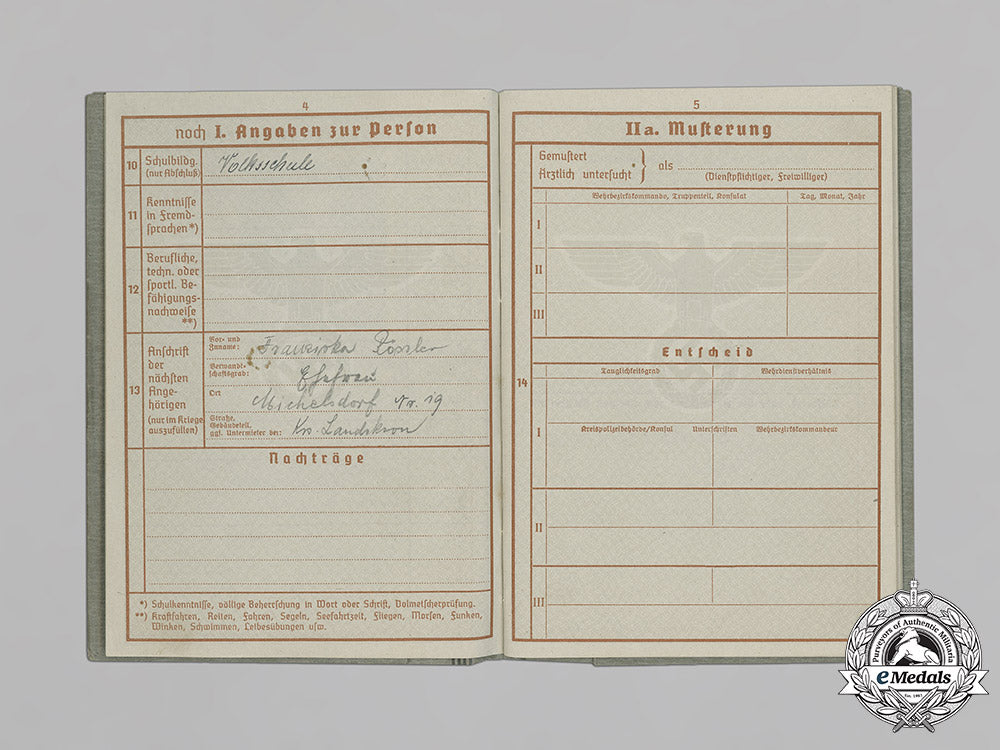 4
noch I. Angaben zur Person
10 Schulbildg. (nur Abschluß)
Volksschule
11 Kenntnisse in Fremd-
sprachen*)
12 Berufliche,
techn. oder
sportl. Be-
fähigungs-
nachweise
**)
13 Anschrift
der
nächsten
Ange-
hörigen
(nur im Kriege
auszufüllen)
Vor- und
Zuname:
Franziska
Verwandt-
schaftsgrad:
Ehefrau
Ort
Michelsdorf Nr. 19
Straße,
Gebäudeteil,
ggf. Untermieter bei:
Krs. Landskron
Nachträge
*) Schulkenntnisse, völlige Beherrschung in Wort oder Schrift, Dolmetscherprüfung.
**) Kraftfahren, Reiten, Fahren, Segeln, Seefahrtzeit, Fliegen, Morsen, Funken,
Winken, Schwimmen, Leibesübungen usw.
5
IIa. Musterung
Gemustert
Ärztlich untersucht } als
(Dienstpflichtiger, Freiwilliger)
Wehrbezirkskommando, Truppenteil, Konsulat Tag, Monat, Jahr
I
II
III
Entscheid
14
Tauglichkeitsgrad Wehrdienstverhältnis
I
Kreispolizeibehörde/Konsul Unterschriften Wehrbezirkskommandeur
II
III
Purveyors of Authentic Militaria
eMedals